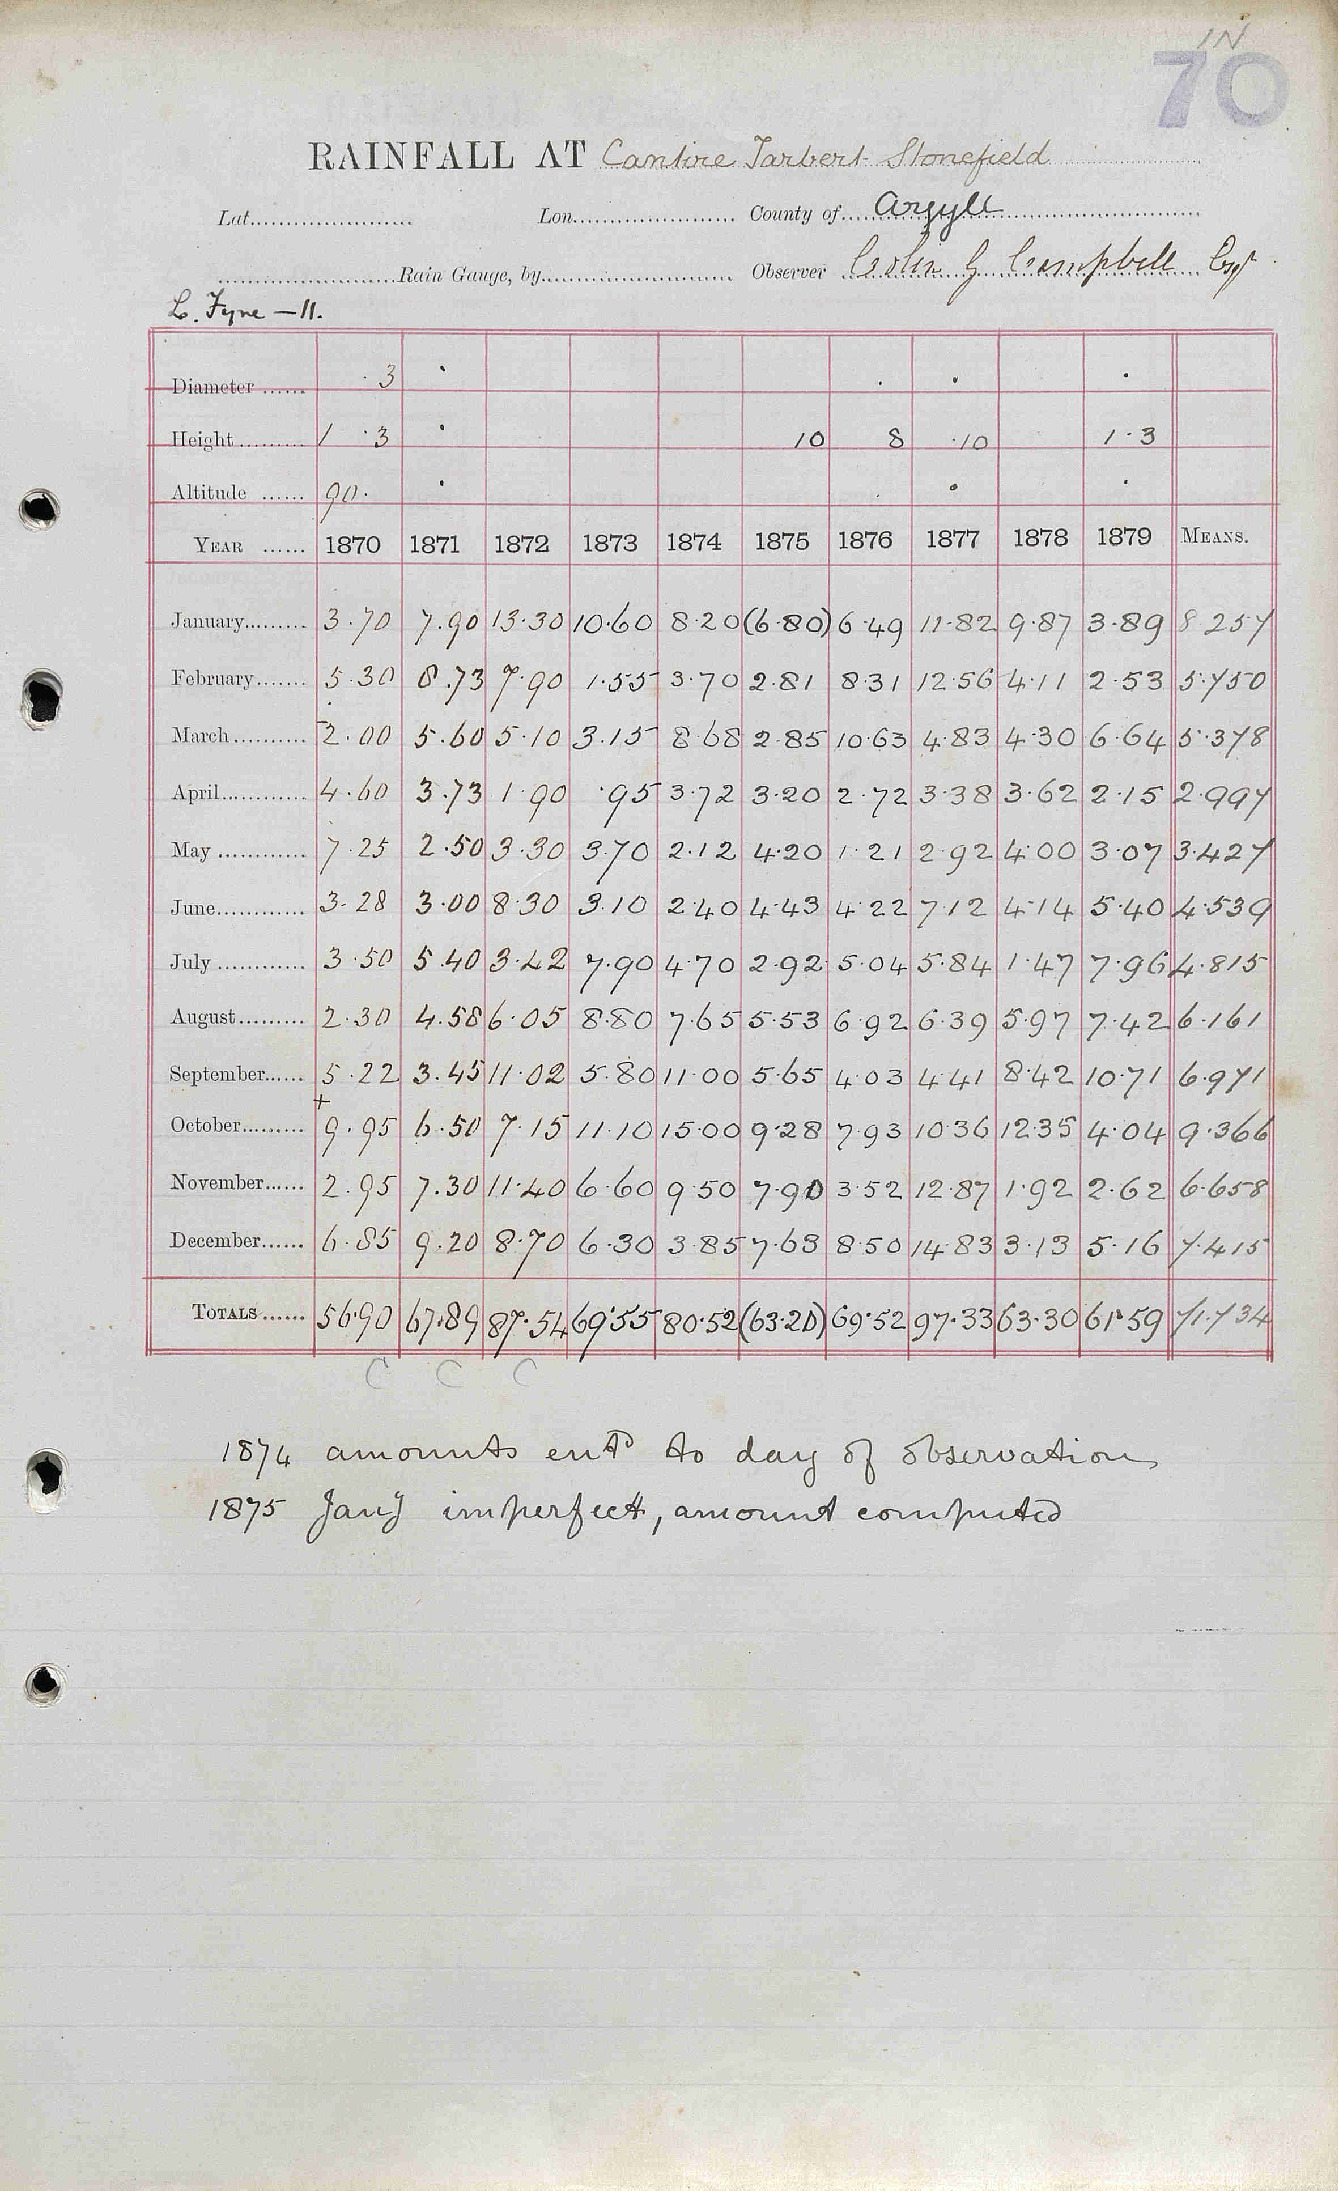 IN
70
RAINFALL AT Cantire Tarbert Stonefield
Lat. Lon. County of Argyll
Rain Gauge, by Observer Colin G Campbell Esqr
L. Fyne - 11.
Diameter 3
Height 1 · 3 10 8 ·10 1·3
Altitude 90·
YEAR 1870 1871 1872 1873 1874 1875 1876 1877 1878 1879 MEANS.
January 3·70 7.90 13·30 10·60 8·20 (6·80) 6·49 11·82 9·87 3·89 8 257
February 5·30 8.73 7·90 1·55 3·70 2·81 8·31 12·56 4·11 2·53 5·750
March 2·00 5·60 5·10 3·15 8·68 2·85 10·63 4·83 4·30 6·64 5·378
April 4·60 3·73 1·90 ·95 3·72 3·20 2·72 3·38 3·62 2·15 2·997
May 7·25 2·50 3·30 3·70 2·12 4·20 1·21 2·92 4·00 3·07 3·427
June 3·28 3·00 8·30 3·10 2·40 4·43 4·22 7·12 4·14 5·40 4·539
July 3·50 5·40 3·42 7·90 4·70 2·92 5·04 5·84 1·47 7·96 4·815
August 2·30 4·58 6·05 8·80 7·65 5·53 6·92 6·39 5·97 7·42 6·161
September 5·22 3·45 11·02 5·80 11·00 5·65 4·03 4·41 8·42 10·71 6·971
+
October 9·95 6·50 7·15 11·10 15·00 9·28 7·93 10·36 12·35 4·04 9·366
November 2·95 7·30 11·40 6·60 9·50 7·90 3·52 12·87 1·92 2·62 6·658
December 6·85 9·20 8·70 6·30 3·85 7·63 8·50 14·83 3·13 5·16 7·415
TOTALS 56·90 67·89 87·54 69·55 80·52 (63·20) 69·52 97·33 63·30 61·59 71·734
C C C
1874 amounts entd to day of observation
1875 Jany imperfect, amount computed